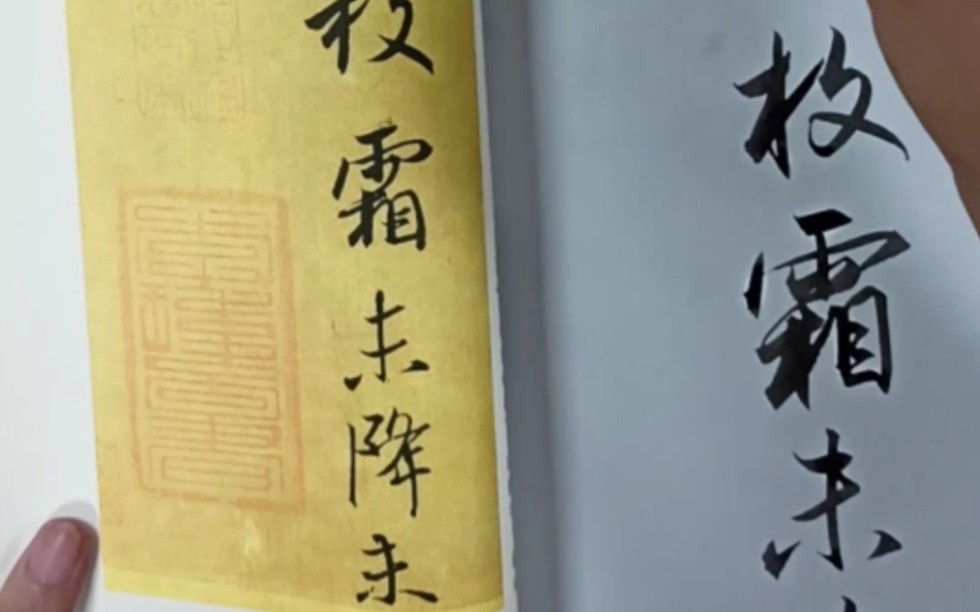 枚霜未降未
枚霜未